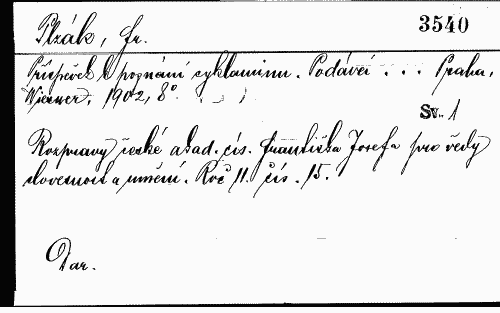 Plzák, Fr.
3540
Příspěvek k poznání cyklaminu. Podává . . . Praha,
Wiesner, 1902, 8°.
Sv. 1
Rozpravy české akad. cís. Františka Josefa pro vědy
slovesnost a umění. Roč 11. čís. 15.
Dar.